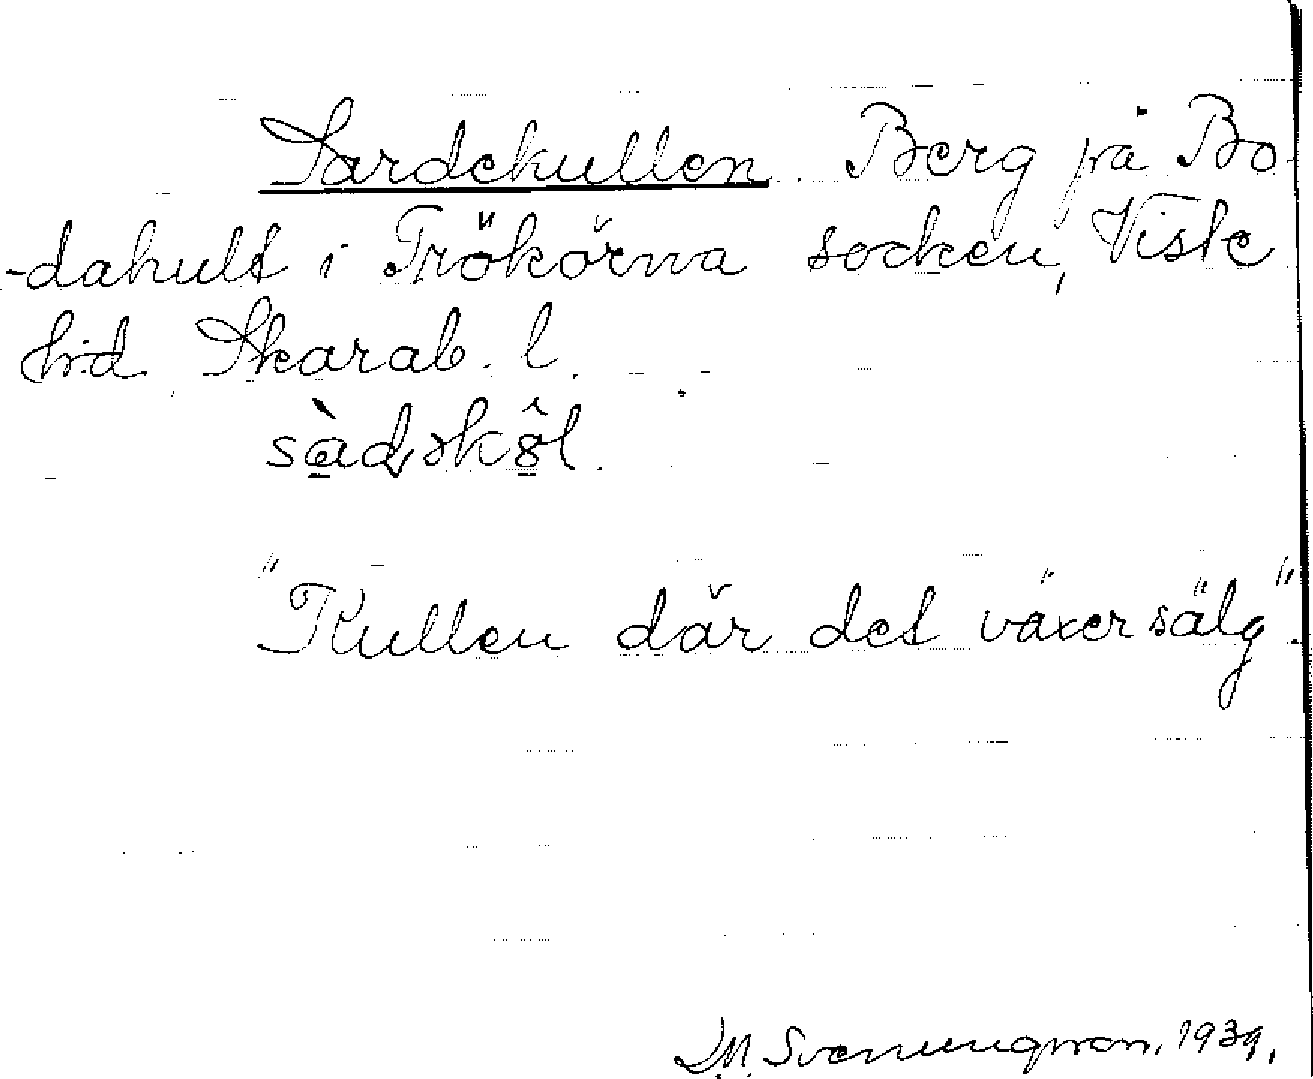 Sardekullen. Berg på Bo-
-dahult i Trökörna socken, Viste
hrd. Skarab. l.
"Kullen där det växer sälg".
D.M. Svenungsson. 1939.